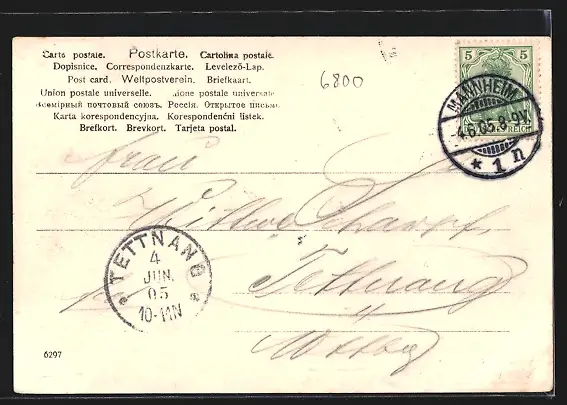 Carte postale. Postkarte. Cartolina postale.
Dopisnice. Correspondenzkarte. Levelező-Lap.
Post card. Weltpostverein. Briefkaart.
Union postale universelle. Unione postale universale
Всемірный почтовый союзъ. Россія. Открытое письмо.
Karta korespondencyjna. Korespondenční listek.
Brefkort. Brevkort. Tarjeta postal.
6800
5 5
MANNHEIM
4.6.05. 8-9V.
* 1 n
REICH
Frau
Wittwe
Tettnang
TETTNANG
4
JUN.
05
10-11N
Wttbg
6297